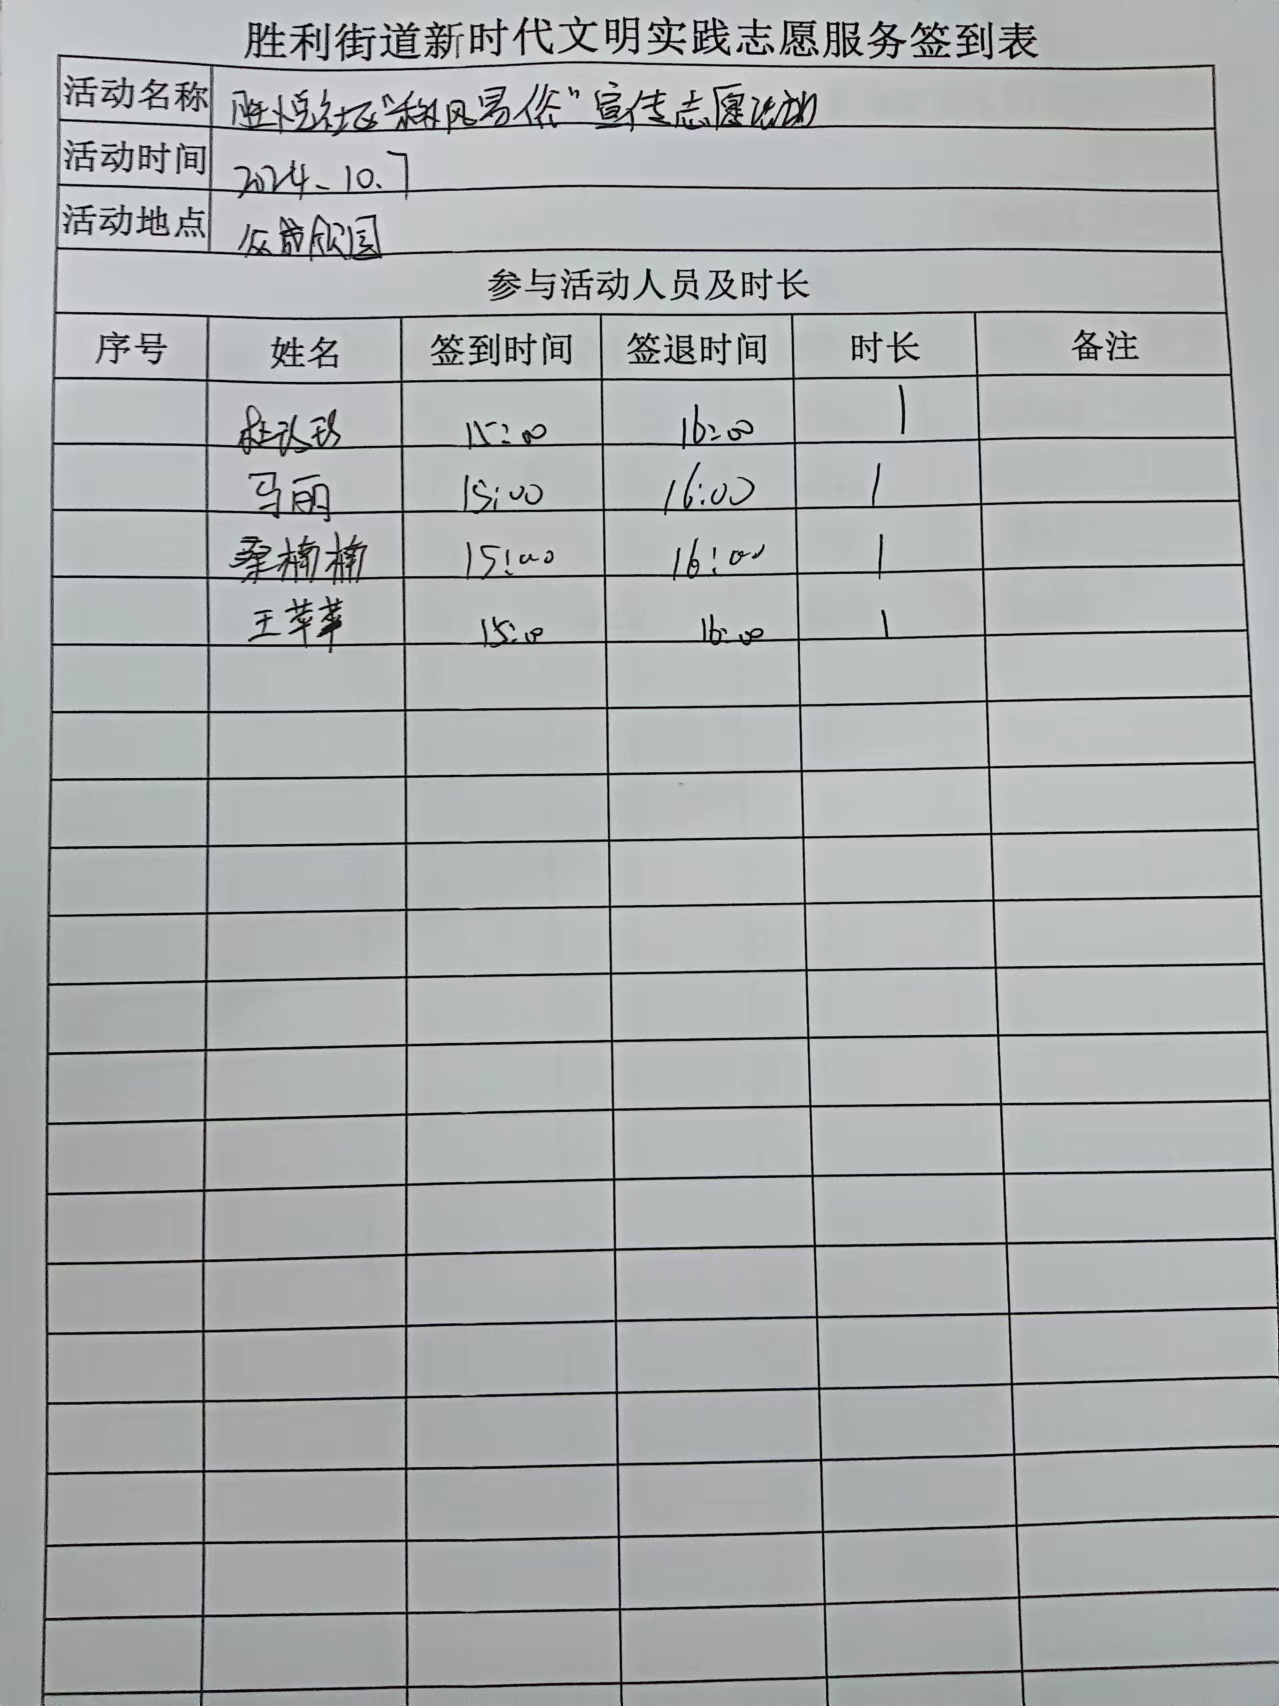 胜利街道新时代文明实践志愿服务签到表
活动名称 胜悦社区“移风易俗”宣传志愿活动
活动时间 2024.10.7
活动地点 众成欣园
参与活动人员及时长
序号 姓名 签到时间 签退时间 时长 备注
15:00 16:00 1
马丽 15:00 16:00 1
桑楠楠 15:00 16:00 1
王苹苹 15:00 16:00 1